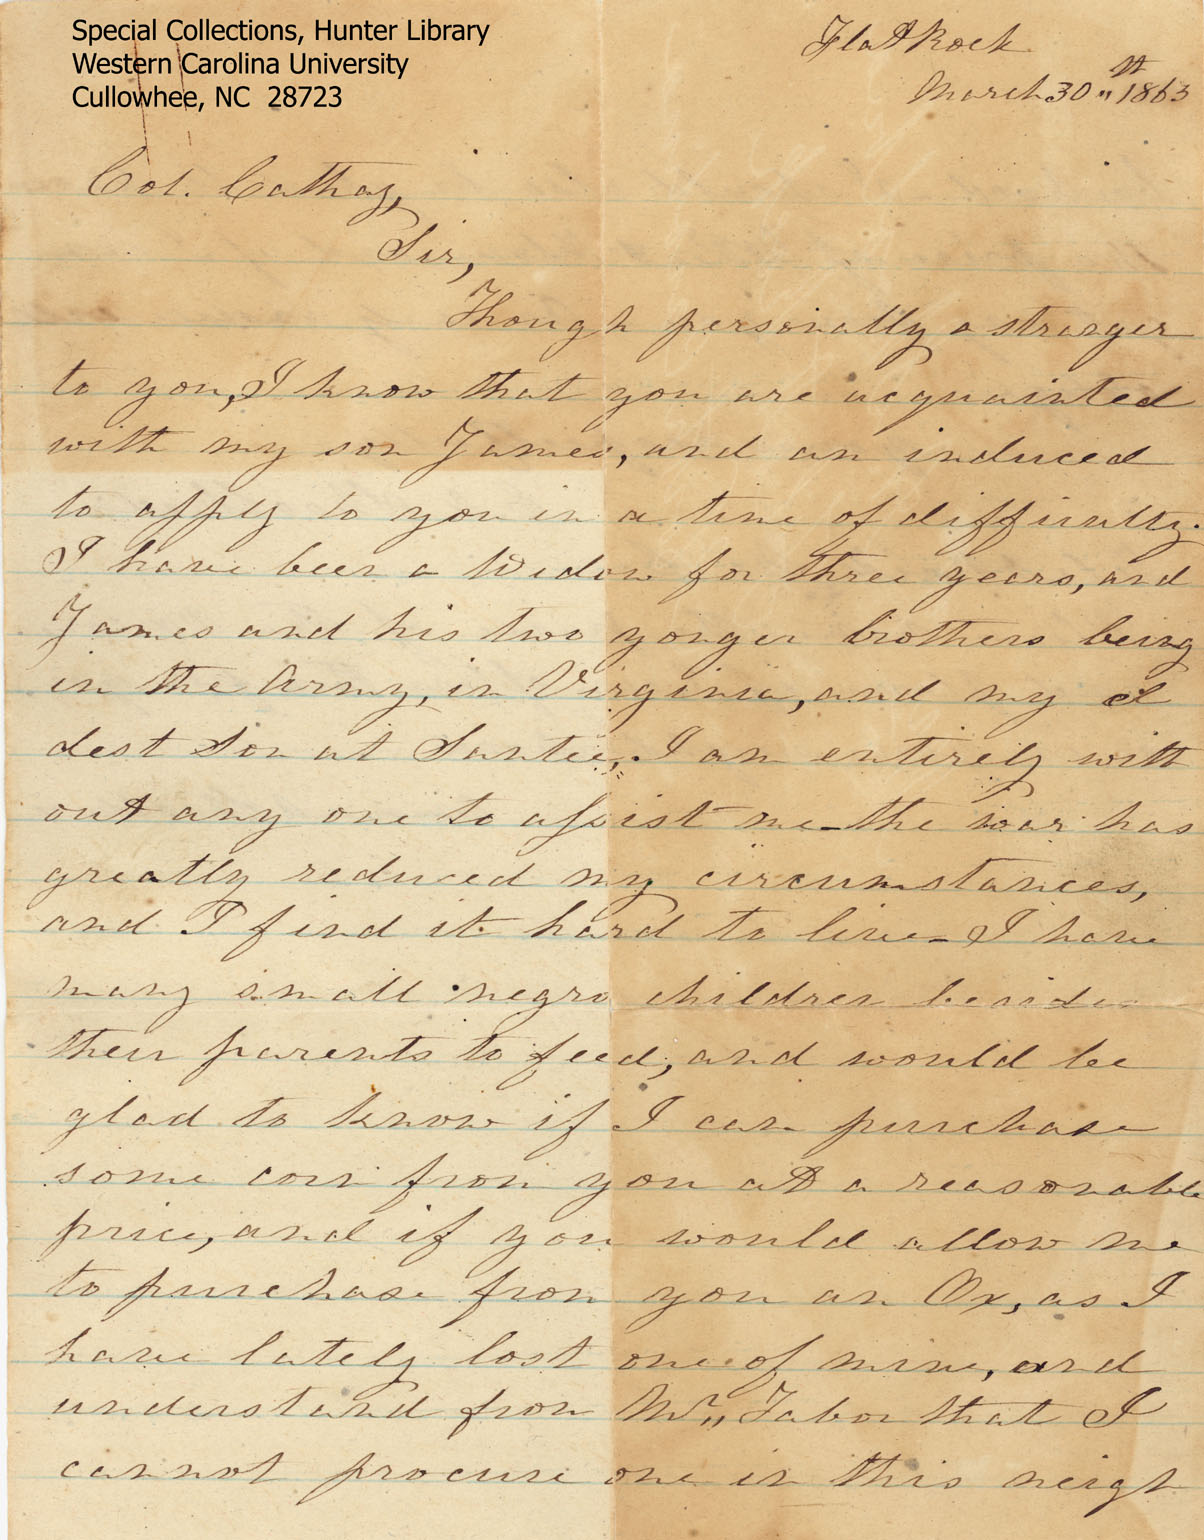 Special Collections, Hunter Library
Western Carolina University
Cullowhee, NC 28723
Flat Rock
March 30"th 1863
Col. Cathay,
Sir,
Though personally a stranger
to you, I know that you are acquainted
with my son James, and am induced
to apply to you in a time of difficulty.
I have been a Widow for three years, and
James and his two yonger brothers being
in the Army, in Virginia, and my el
dest Son at Santee, I am entirely with
out any one to assist me_the war has
greatly reduced my circumstances,
and I find it hard to live_I have
many small negro children besides
their parents to feed, and would be
glad to know if I can purchase
some corn from you at a reasonable
price, and if you would allow me
to purchase from you an Ox, as I
have lately lost one of mine, and
understand from Mr" Tabor that I
cannot procure one in this neigh